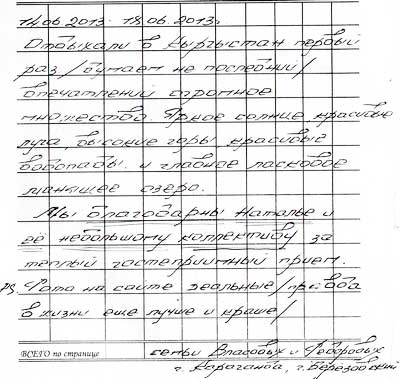 14.06.2013 - 18.06.2013.
Отдыхали в Кыргыстан первый
раз / думаем не последний /
впечатлений огромное
множество. Яркое солнце, красивые
луга, высокие горы, красивые
водопады и главное ласковое
манящее озеро.
Мы благодарны Наталье и
её небольшому коллективу за
теплый гостеприимный прием.
PS. Фото на сайте реальные / правда
в жизни еще лучше и краше /
ВСЕГО по странице
семьи Власовых и Федоровых
г. Караганда, г. Березовский